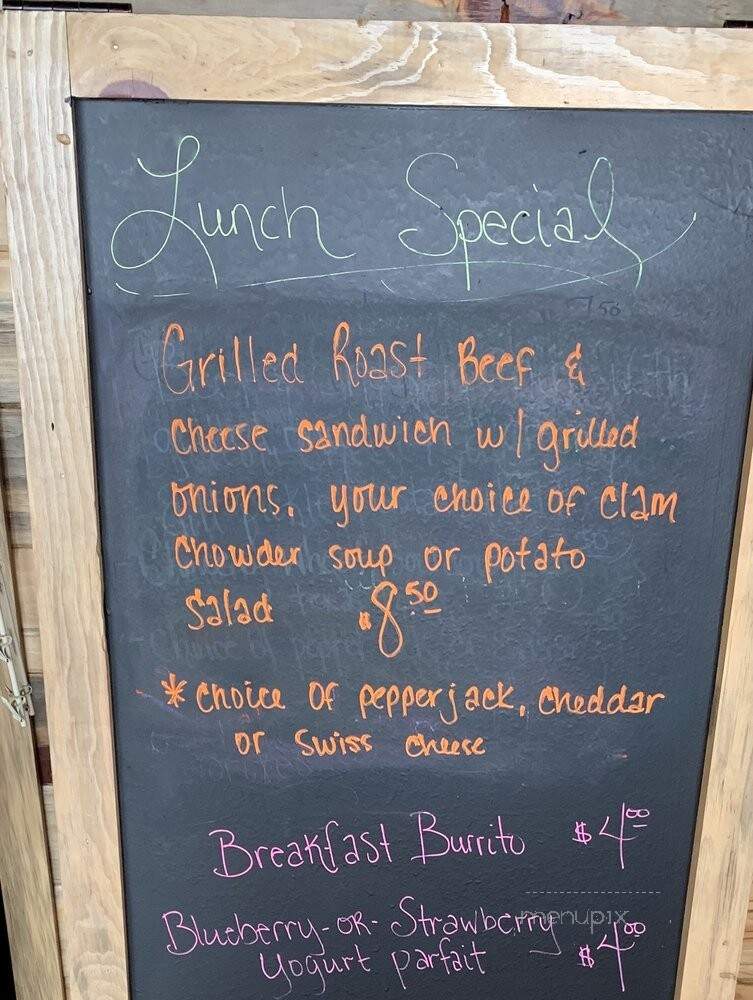 Lunch Special
Grilled Roast Beef &
Cheese sandwich w/ grilled
onions, your choice of Clam
Chowder soup or potato
Salad $8.50
* Choice of pepperjack, cheddar
or swiss cheese
Breakfast Burrito $4.00
Blueberry-or-Strawberry
Yogurt parfait $4.00
menupix